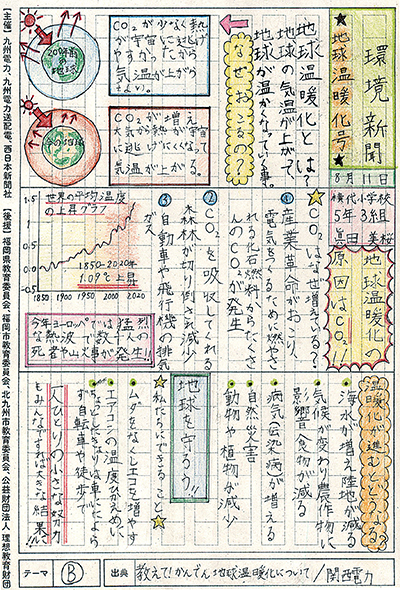 環境新聞
★地球温暖化号★
8月11日
5年3組
地球温暖化とは？
地球の気温が上がって、
地球が温かくなっていく事。
なぜおこるの？
CO₂が少なく熱
気温が上がら
200年前の地球
CO₂が増え
気温が上がる。
今の地球
地球温暖化の
原因はCO₂!!
☆CO₂はなぜ増えている？
①産業革命がおこり、
電気をつくるために燃やさ
れる化石燃料からたくさ
んのCO₂が発生
②CO₂を吸収してくれる
森林が切り倒され減少
③自動車や飛行機の排気
ガス
世界の平均温度
の上昇グラフ
1.5
1.0
0.5
0.0
1850-2020年
1.09℃上昇
1850 1900 1940 1980 2020
今年ヨーロッパでは猛烈
な熱波で数千人の
死者や山火事が発生!!
温暖化が進むとどうなる？
海水が増え陸地が減る
気候が変わり農作物に
影響食べ物が減る
病気(伝染病)が増える
自然災害
動物や植物が減少
地球を守ろう!!
☆私たちにできること☆
ムダをなくしエコを増やす
エアコンの温度ひかえめに
自転車や徒歩で
一人ひとりの小さな努力
もみんなですれば大きな結果!!
テーマ
B
出典
教えて!かんでん 地球温暖化について/関西電力
【主催】九州電力、九州電力送配電、西日本新聞社
【後援】福岡県教育委員会、福岡市教育委員会、北九州市教育委員会、公益財団法人 理想教育財団